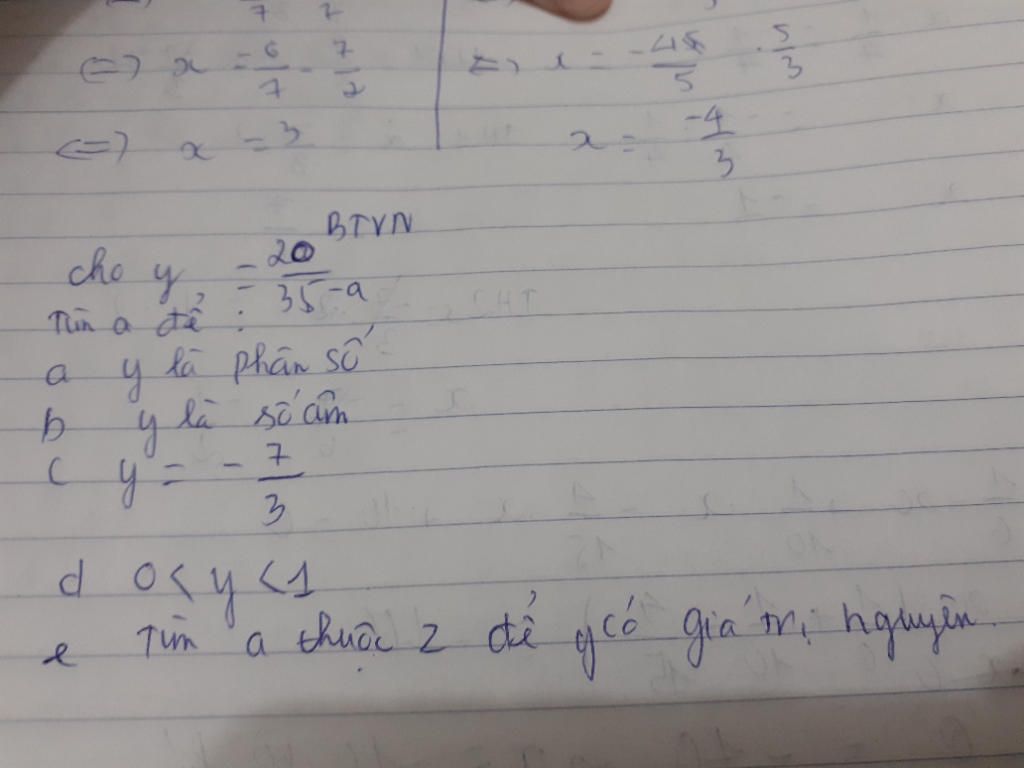 7 2
⇔ x = 6/7 - 7/2
⇔ x = 3
⇔ x = -45/5 . 5/3
x = -4/3
BTVN
cho y = 20/35-a
Tìm a để :
a y là phân số
b y là số âm
c y = - 7/3
d 0 < y < 1
e Tìm a thuộc Z để y có giá trị nguyên.